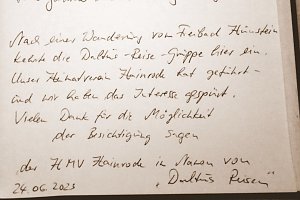 Nach einer Wanderung vom Freibad Hünstein
kehrte die Dultus-Reise-Gruppe hier ein.
Unser Heimatverein Hainrode hat geführt -
und wir haben das Interesse gespürt.
Vielen Dank für die Möglichkeit
der Besichtigung sagen
der HMV Hainrode im Namen von
24.06.2023 „Dultus Reisen"